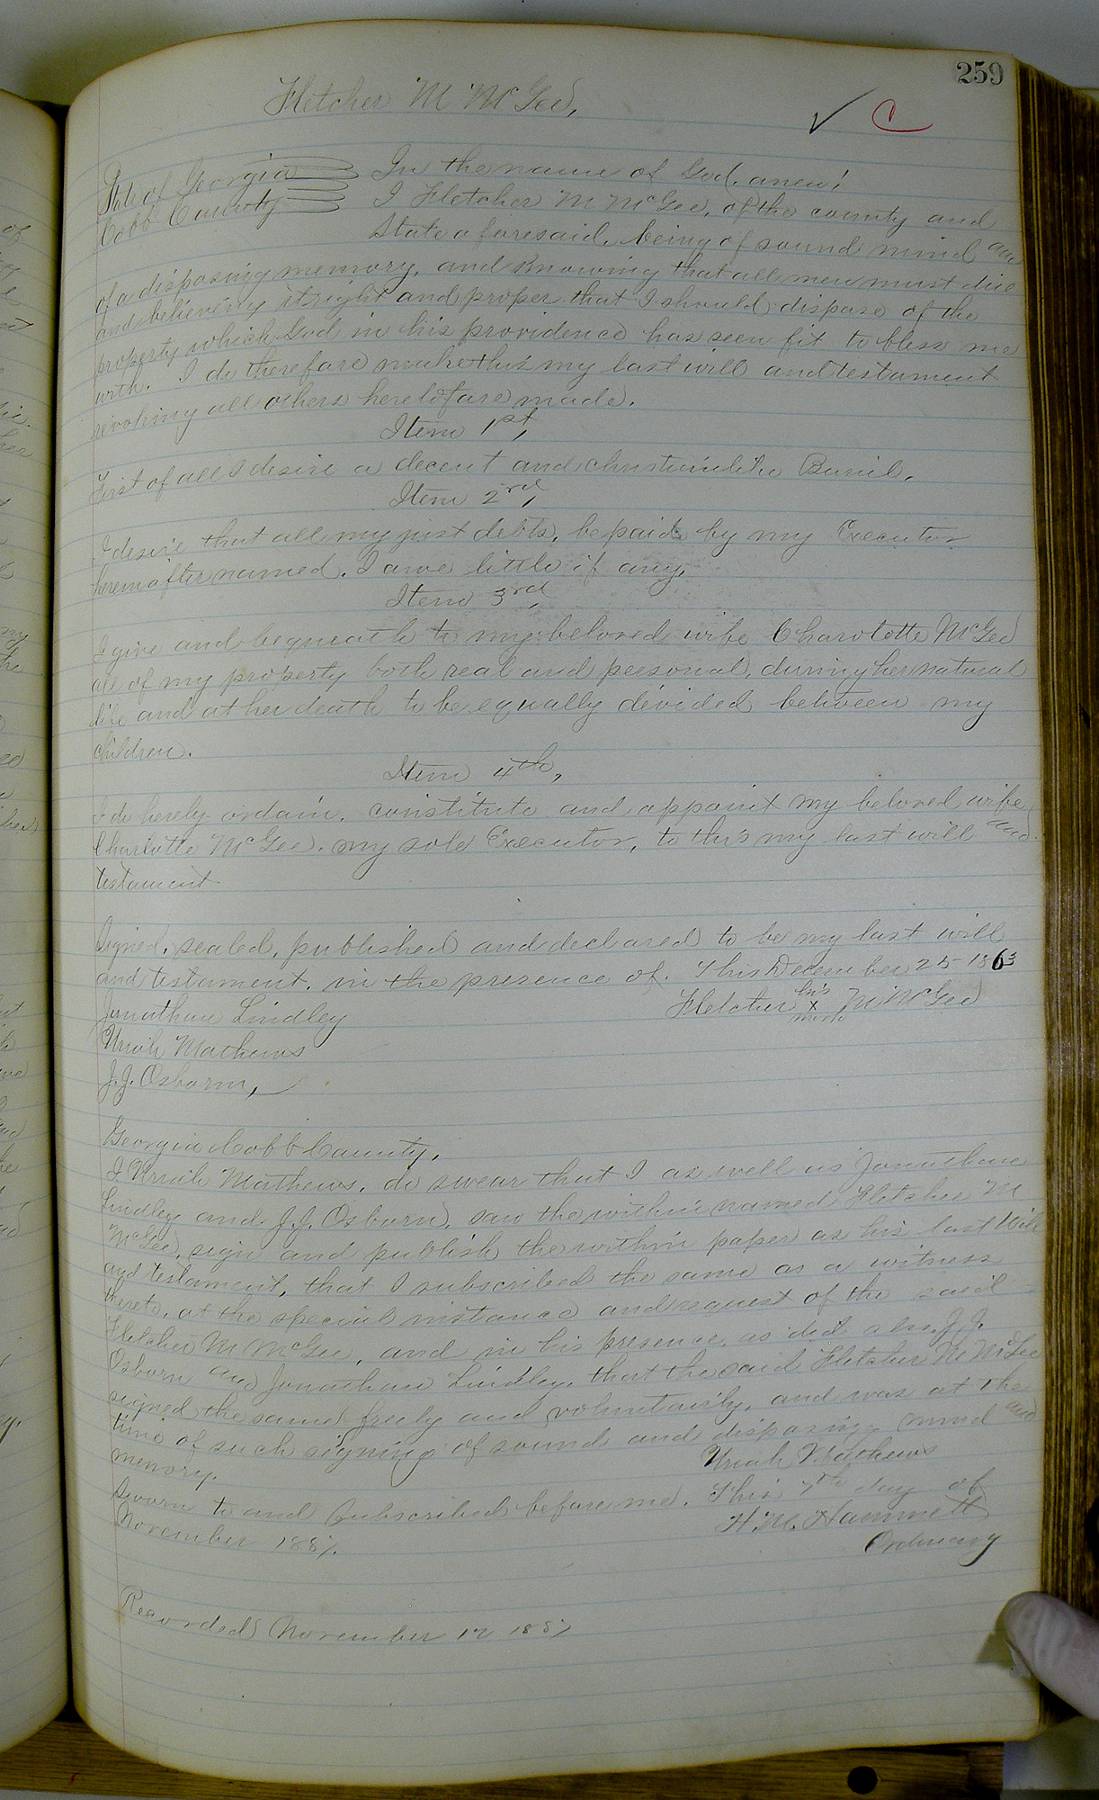 259
Fletcher M McGee,
C
State of Georgia In the name of God. amen!
Cobb County I Fletcher M McGee, of the county and
State aforesaid, being of sound mind and
of a disposing memory, and knowing that all men must die
and believing it right and proper that I should dispose of the
property which God in his providence has seen fit to bless me
with. I do therefore make this my last will and testament
revoking all others heretofore made.
Item 1st,
First of all I desire a decent and christianlike Burial.
Item 2nd,
I desire that all my just debts, be paid by my Executor
hereinafter named. I owe little if any.
Item 3rd,
I give and bequeath to my beloved wife Charolotte McGee
all of my property both real and personal, during her natural
life and at her death to be equally divided between my
children.
Item 4th,
I do hereby ordain, constitute and appoint my beloved wife
Charlotte McGee. my sole Executor, to this my last will and
testament
Signed, sealed, published and declared to be my last will
and testament, in the presence of. This December 25 1863
Jonathan Lindley Fletcher his x mark M McGee
Uriah Mathews
J.J. Osborn,
Georgia Cobb County.
I Uriah Mathews, do swear that I as well as Jonathan
Lindley and J.J. Osburn, saw the within named Fletcher M
McGee, sign and publish the within paper as his last Will
and testament, that I subscribed the same as a witness
thereto, at the special instance and request of the said
Fletcher M McGee, and in his presence, as did also J.J.
Osborn and Jonathan Lindley, that the said Fletcher M McGee
signed the same freely and voluntarily, and was at the
time of such signing of sound and disposing mind and
memory. Uriah Mathews
Sworn to and Subscribed before me. This 7th day of
November 1887. H.M. Hammett
Ordinary
Recorded November 12 1887